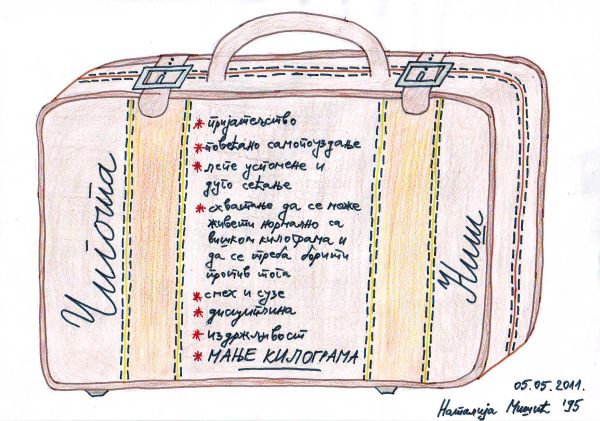 Чигота
*пријатељство
*повећано самопоуздање
*лепе успомене и
дуго сећање
*схватање да се може
живети нормално са
вишком килограма и
да се треба борити
против тога
*смех и сузе
*дисциплина
*издржљивост
*МАЊЕ КИЛОГРАМА
Ниш
05.05.2011.
Наталија '95